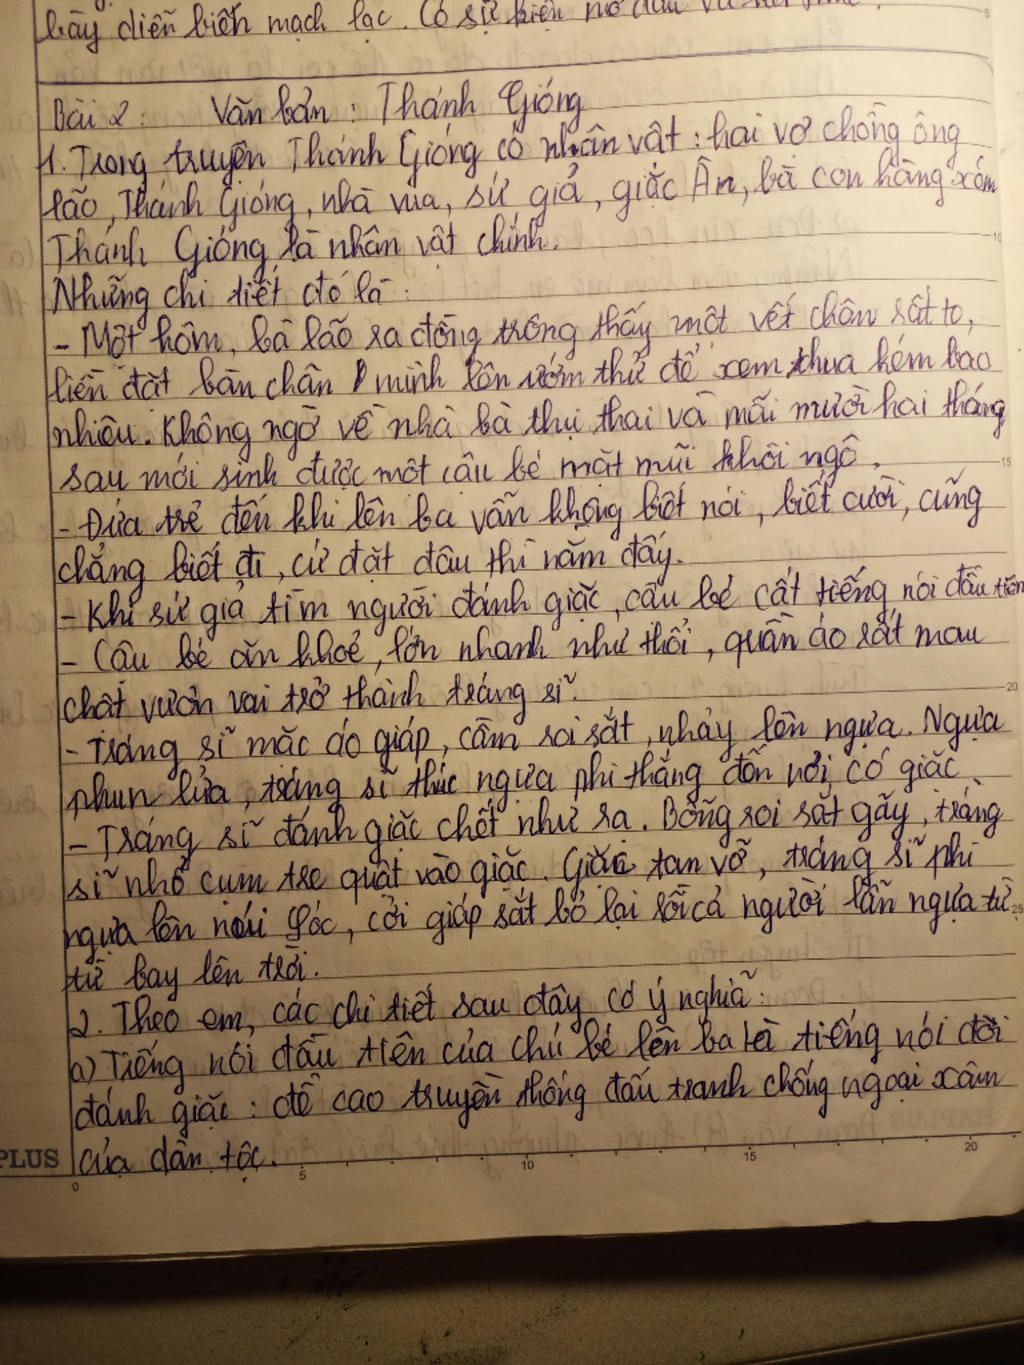 bày diễn biến mạch lạc. Có sự kiện mở đầu và
Bài 2: Văn bản: Thánh Gióng
1. Trong truyện Thánh Gióng có nhân vật: hai vợ chồng ông
lão, Thánh Gióng, nhà vua, sứ giả, giặc Ân, bà con hàng xóm
Thánh Gióng là nhân vật chính.
Những chi tiết đó là:
- Một hôm, bà lão ra đồng trông thấy một vết chân rất to,
liền đặt bàn chân mình lên ướm thử để xem thua kém bao
nhiêu. Không ngờ về nhà bà thụ thai và mãi mười hai tháng
sau mới sinh được một cậu bé mặt mũi khôi ngô.
- Đứa trẻ đến khi lên ba vẫn không biết nói, biết cười, cũng
chẳng biết đi, cứ đặt đâu thì nằm đấy.
- Khi sứ giả tìm người đánh giặc, cậu bé cất tiếng nói đầu tiên
- Cậu bé ăn khoẻ, lớn nhanh như thổi, quần áo rất mau
chật vươn vai trở thành tráng sĩ.
- Tráng sĩ mặc áo giáp, cầm roi sắt, nhảy lên ngựa. Ngựa
phun lửa, tráng sĩ thúc ngựa phi thẳng đến nơi có giặc.
- Tráng sĩ đánh giặc chết như rạ. Bỗng roi sắt gãy, tráng
sĩ nhổ cụm tre quật vào giặc. Giặc tan vỡ, tráng sĩ phi
ngựa lên núi Sóc, cởi giáp sắt bỏ lại rồi cả người lẫn ngựa từ
từ bay lên trời.
2. Theo em, các chi tiết sau đây có ý nghĩa:
a) Tiếng nói đầu tiên của chú bé lên ba là tiếng nói đòi
đánh giặc: đề cao truyền thống đấu tranh chống ngoại xâm
PLUS của dân tộc.
0 5 10 15 20